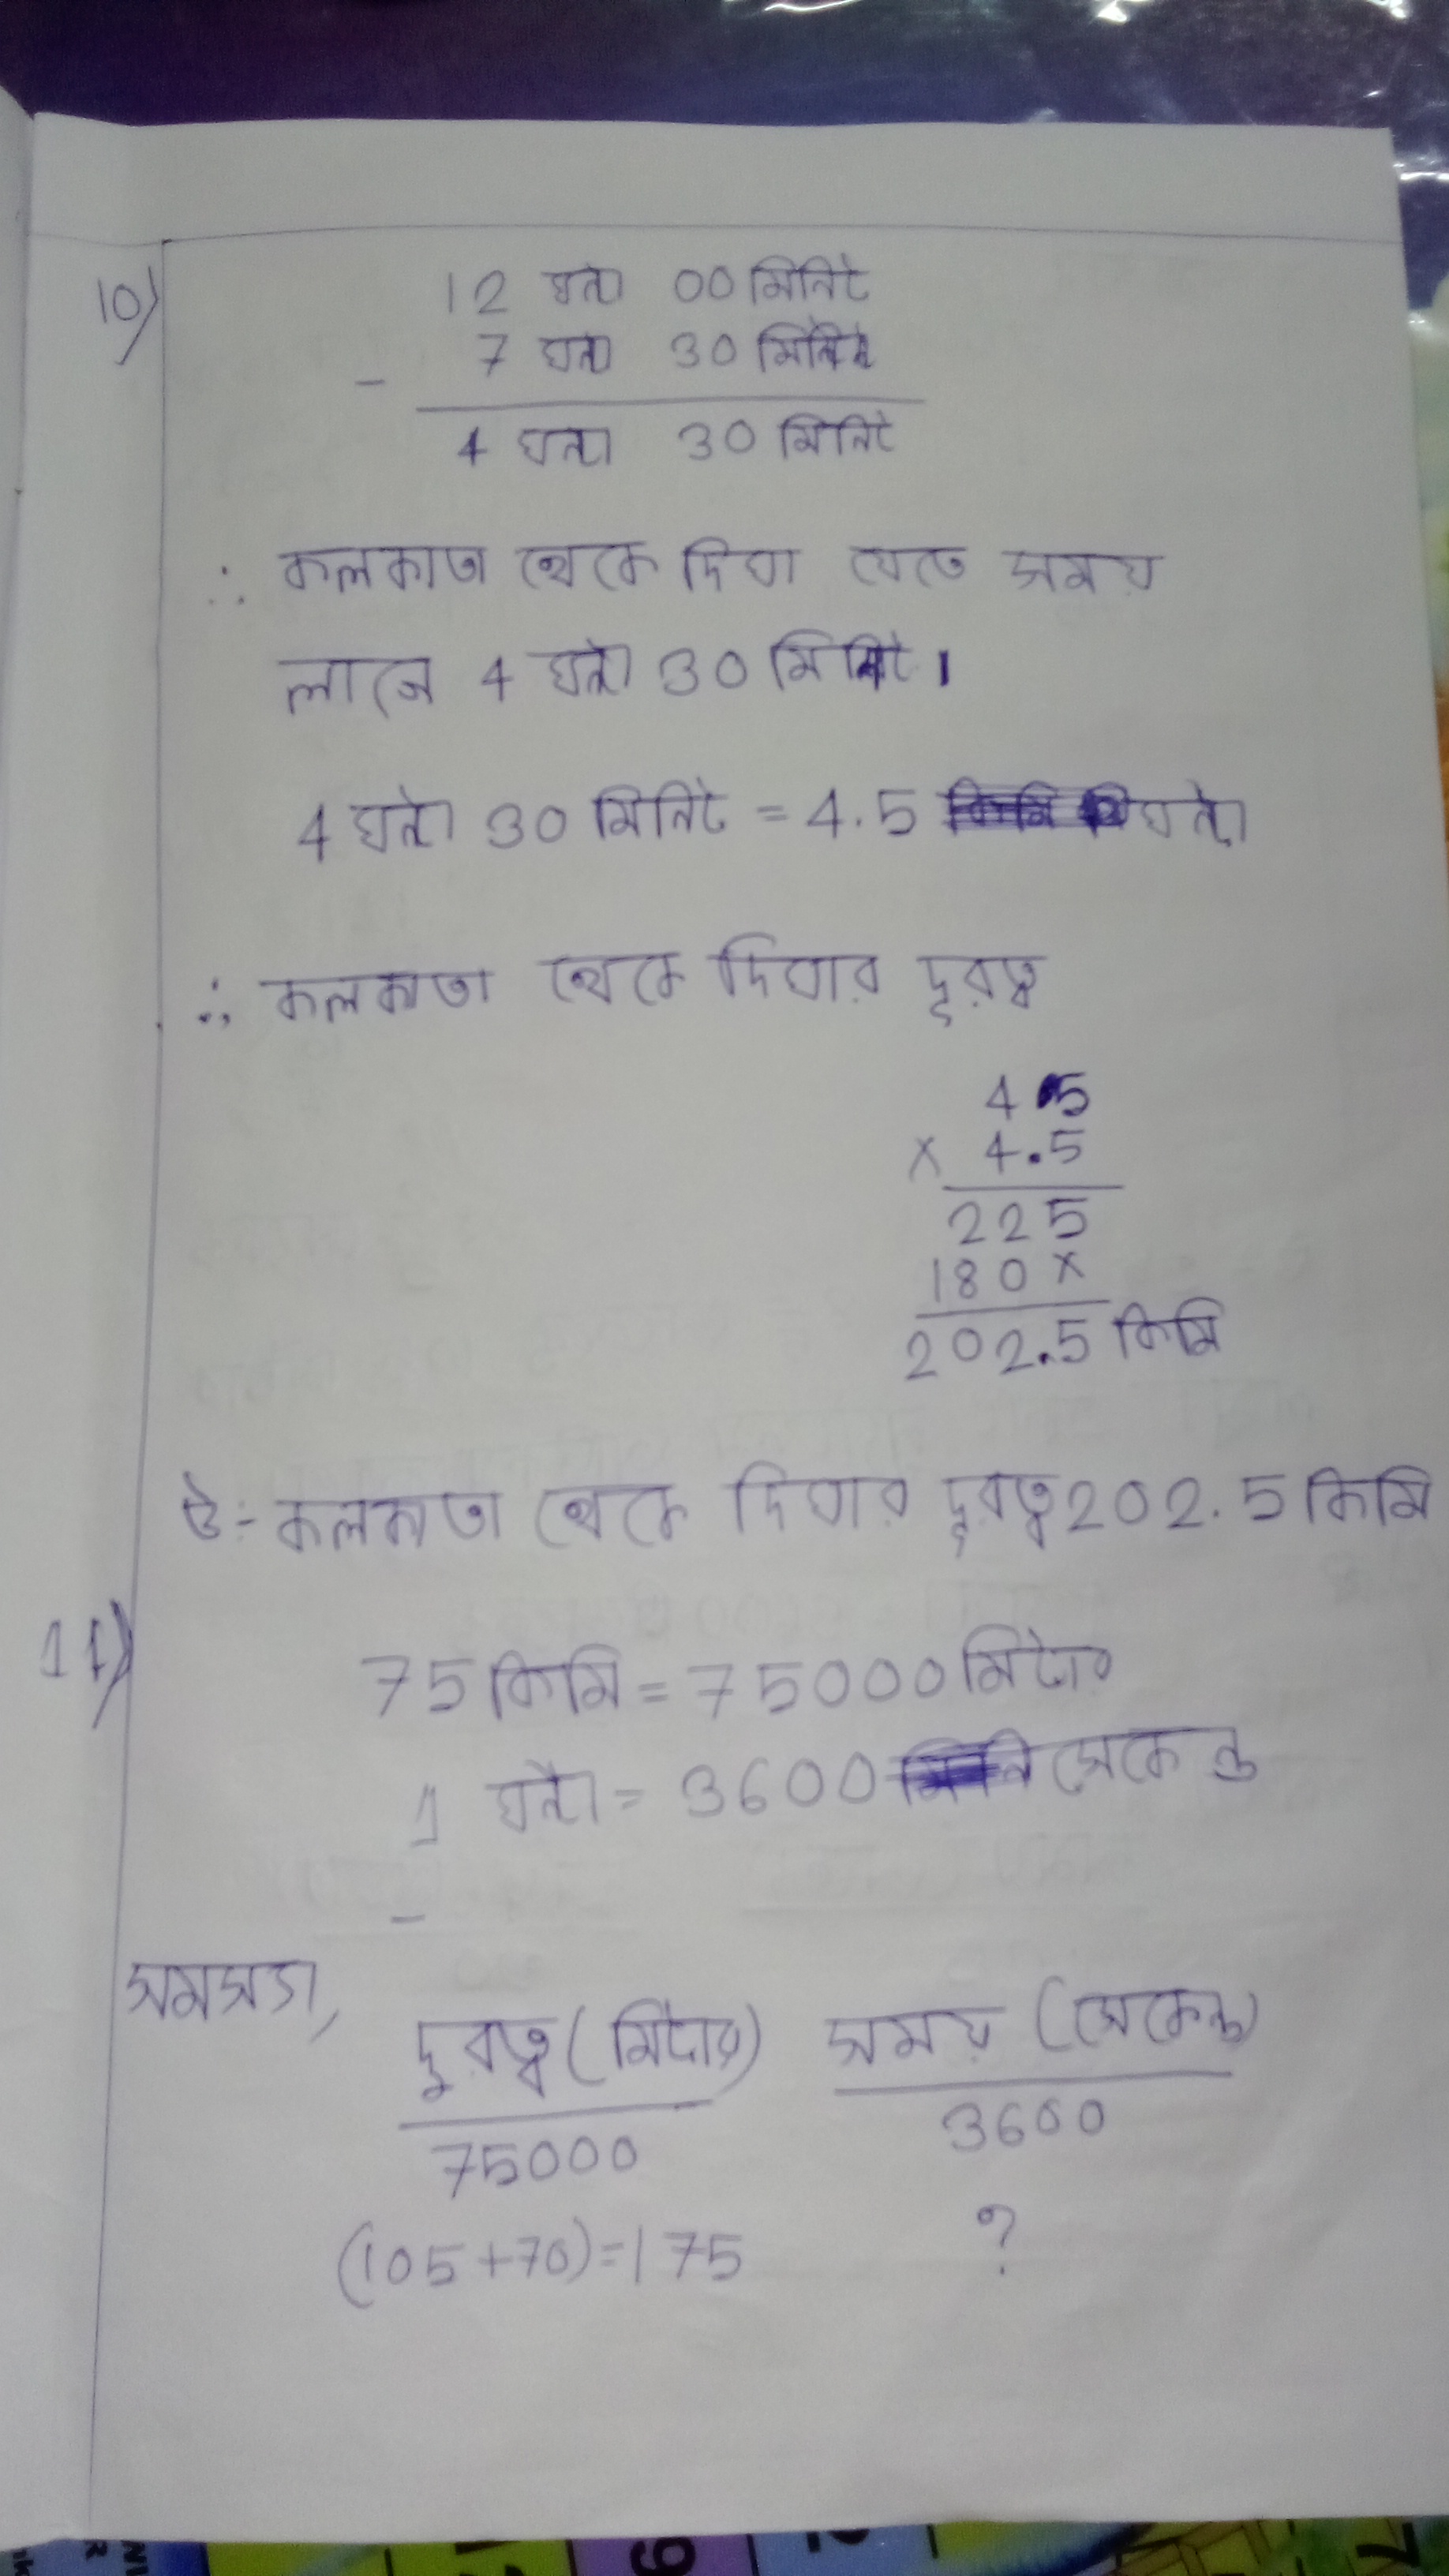 10)
12 ঘন্টা 00 মিনিট
- 7 ঘন্টা 30 মিনিট
4 ঘন্টা 30 মিনিট
∴ কলকাতা থেকে দিঘা যেতে সময়
লাগে 4 ঘন্টা 30 মিনিট।
4 ঘন্টা 30 মিনিট = 4.5 ঘন্টা
∴ কলকাতা থেকে দিঘার দূরত্ব
45
x 4.5
225
180x
202.5 কিমি
উ:- কলকাতা থেকে দিঘার দূরত্ব 202.5 কিমি
11)
75 কিমি = 75000 মিটার
1 ঘন্টা = 3600 সেকেন্ড
সমস্যা,
দূরত্ব (মিটার) সময় (সেকেন্ড)
75000 3600
(105+70)=175 ?